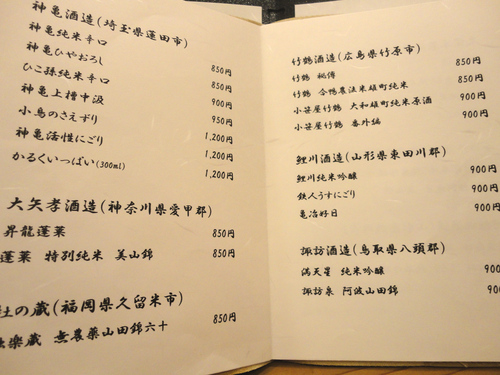 神亀酒造(埼玉県蓮田市)
神亀純米辛口 850円
神亀ひやおろし 850円
ひこ孫純米辛口 900円
神亀上槽中汲 950円
小鳥のさえずり 1,200円
神亀活性にごり 1,200円
かるくいっぱい(300ml)
大矢孝酒造(神奈川県愛甲郡)
昇龍蓬莱 850円
蓬莱 特別純米 美山錦 850円
杜の蔵(福岡県久留米市)
独楽蔵 無農薬山田錦六十 850円
竹鶴酒造(広島県竹原市)
竹鶴 秘傳 850円
竹鶴 合鴨農法米雄町純米 850円
小笹屋竹鶴 大和雄町純米原酒 900円
小笹屋竹鶴 番外編 900円
鯉川酒造(山形県東田川郡)
鯉川純米吟醸 900円
鉄人うすにごり 900円
亀治好日 900円
諏訪酒造(鳥取県八頭郡)
満天星 純米吟醸 900
諏訪泉 阿波山田錦 900